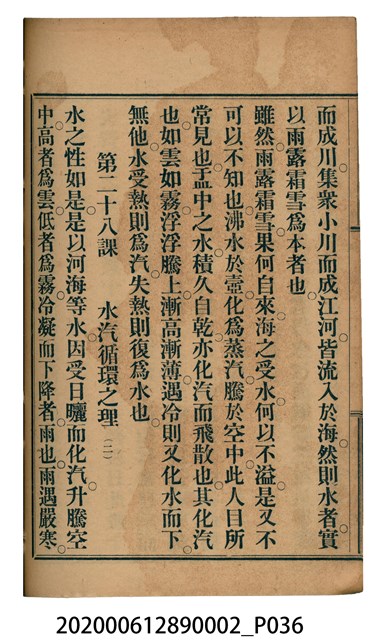 而成川集衆小川而成江河皆流入於海然則水者實
以雨露霜雪爲本者也
雖然雨露霜雪果何自來海之受水何以不溢是又不
可以不知也沸水於壼化爲蒸汽騰於空中此人目所
常見也盂中之水積久自乾亦化汽而飛散也其化汽
也如雲如霧浮浮騰上漸高漸薄遇冷則又化水而下
無他水受熱則爲汽失熱則復爲水也
第二十八課 水汽循環之理 (二)
水之性如是是以河海等水因受日曬而化汽升騰空
中高者爲雲低者爲霧冷凝而下降者雨也雨遇嚴寒
202000612890002_P036